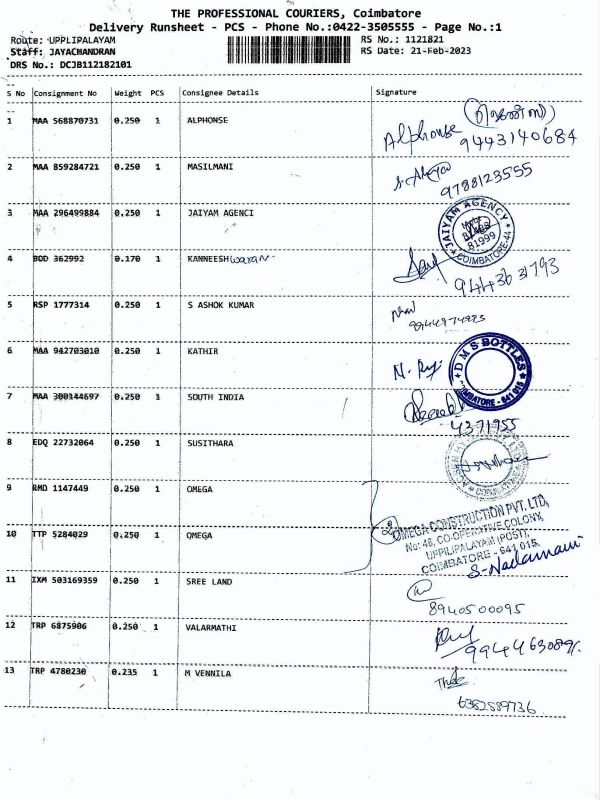 THE PROFESSIONAL COURIERS, Coimbatore
Delivery Runsheet - PCS - Phone No.:0422-3505555 - Page No.:1
Route: UPPLIPALAYAM RS No.: 1121821
Staff: JAYACHANDRAN RS Date: 21-Feb-2023
DRS No.: DCJB112182101
S No Consignment No Weight PCS Consignee Details Signature
1 MAA 568870731 0.250 1 ALPHONSE Alphonse 9443140684
2 MAA 859284721 0.250 1 MASILMANI 9788123555
3 MAA 296499884 0.250 1 JAIYAM AGENCI JAIYAM AGENCY COIMBATORE-44
4 BOD 362992 0.170 1 KANNEESHwaran 9443631793
5 RSP 1777314 0.250 1 S ASHOK KUMAR
6 MAA 942703010 0.250 1 KATHIR DMS BOTTLES COIMBATORE - 641 015
7 MAA 300144697 0.250 1 SOUTH INDIA 4371955
8 EDQ 22732064 0.250 1 SUSITHARA
9 RMD 1147449 0.250 1 OMEGA
10 TTP 5284029 0.250 1 OMEGA
OMEGA CONSTRUCTION PVT. LTD,
No: 48, CO-OPERATIVE COLONY,
UPPILIPALAYAM (POST),
COIMBATORE - 641 015.
11 IXM 503169359 0.250 1 SREE LAND 8940500095
12 TRP 6875906 0.250 1 VALARMATHI
13 TRP 4780230 0.235 1 M VENNILA 6382889736